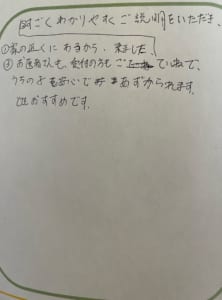 すごくわかりやすくご説明をいただき、
①家の近くにあるから、来ました。
②お医者さんも、受付の方もごていねいで、
うちの子も安心であずけられます。
ぜひおすすめです。